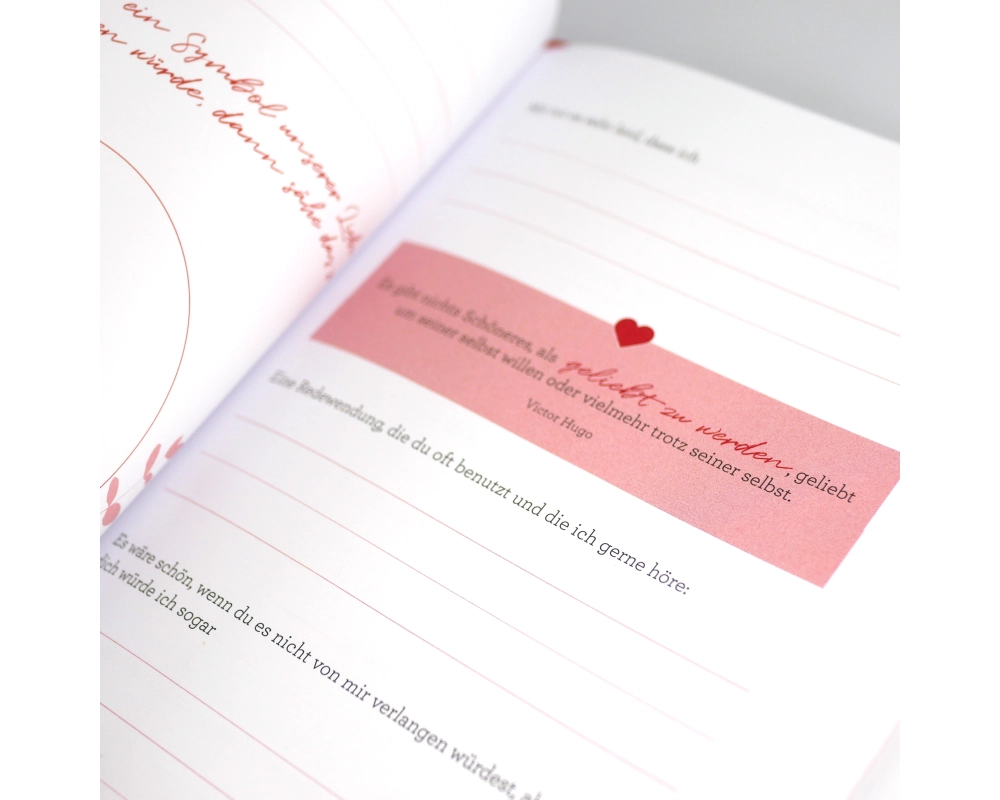 ein Symbol unserer
würde, dann sähe das
Es gibt nichts Schöneres, als geliebt zu werden, geliebt
um seiner selbst willen oder vielmehr trotz seiner selbst.
Victor Hugo
Eine Redewendung, die du oft benutzt und die ich gerne höre:
Es wäre schön, wenn du es nicht von mir verlangen würdest,
dich würde ich sogar